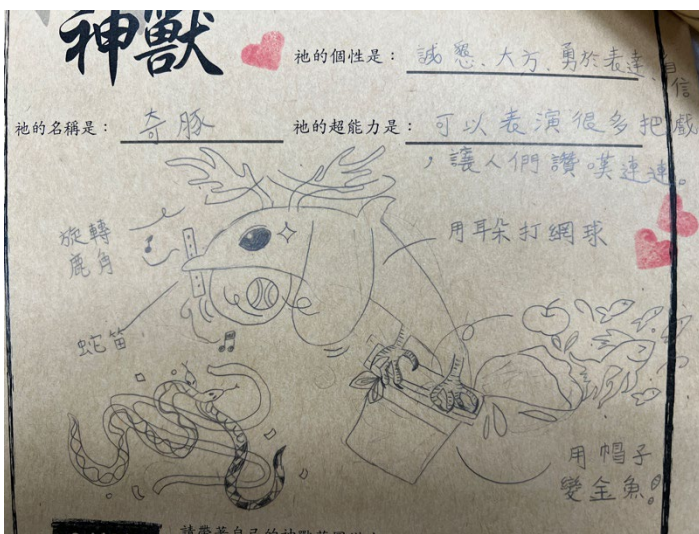 神獸
祂的個性是：誠懇、大方、勇於表達、自信
祂的名稱是：奇豚
祂的超能力是：可以表演很多把戲
，讓人們讚嘆連連。
旋轉
鹿角
用耳朵打網球
蛇笛
用帽子
變金魚!